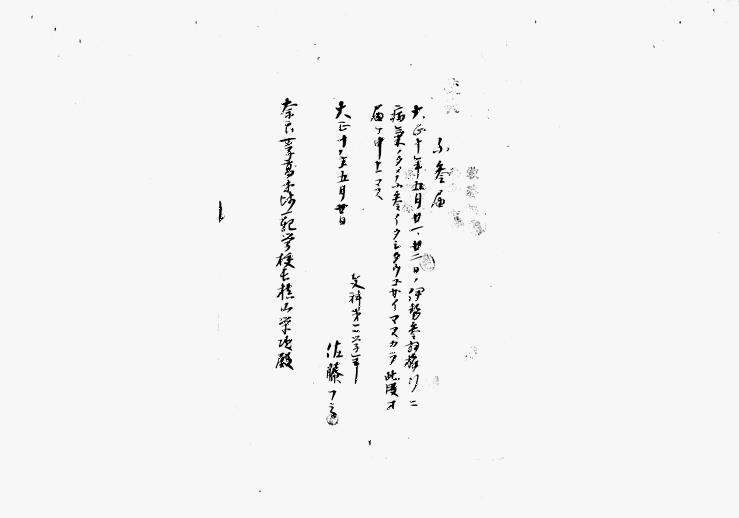 不参届
大正十年五月廿一、廿二日ノ伊勢参詣旅行ニ
病氣ノタメ不参イタシタウゴザイマスカラ此段オ
届ケ申上マス
大正十年五月廿日
文科第二学年
佐藤
奈良女子高等師範学校長槇山栄次殿